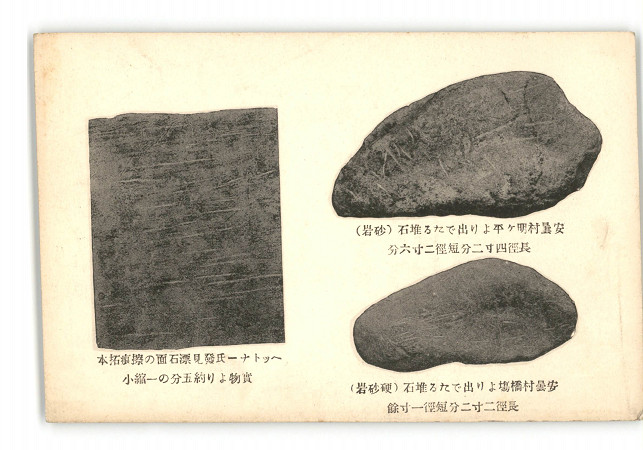 安曇村明ケ平より出でたる堆石（砂岩）
長徑四寸二分短徑二寸六分
安曇村橋塲より出でたる堆石（硬砂岩）
長徑二寸二分短徑一寸餘
ヘットナー氏發見漂石面の擦痕拓本
實物より約五分の一縮小